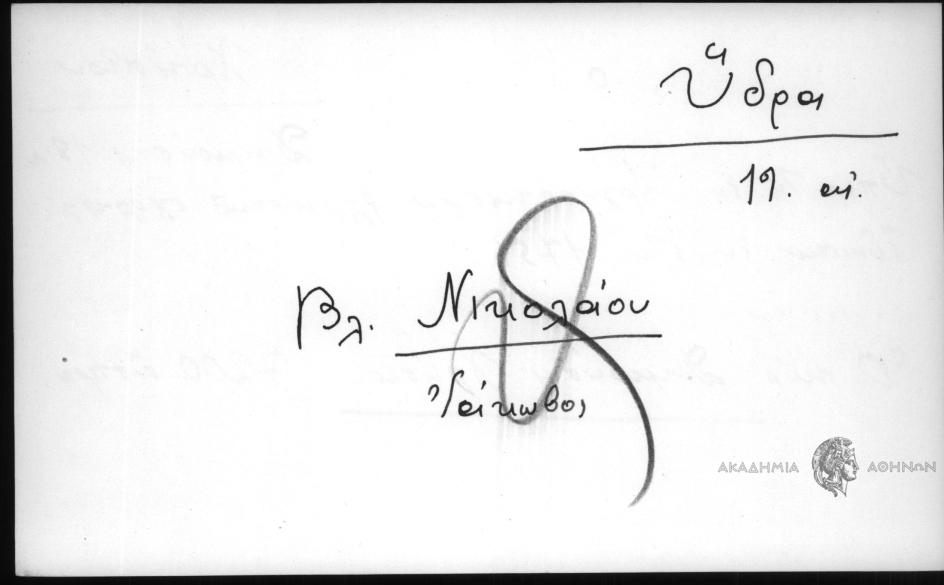 Ὕδρα
19. αἰ.
Βλ. Νικολάου
Ἰάκωβος
ΑΚΑΔΗΜΙΑ ΑΘΗΝΩΝ